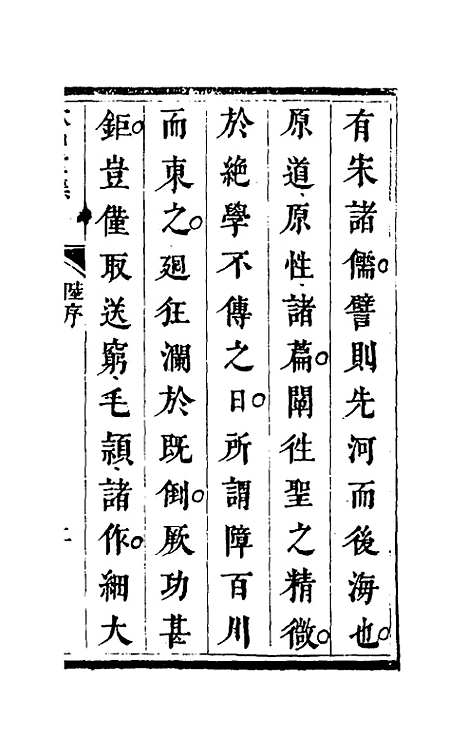 有宋諸儒。譬則先河而後海也。
原道、原性、諸篇。闡徃聖之精微。
於絶學不傳之日。所謂障百川
而東之。廻狂瀾於既倒。厥功甚
鉅。豈僅取送窮、毛頴、諸作。細大
陸序